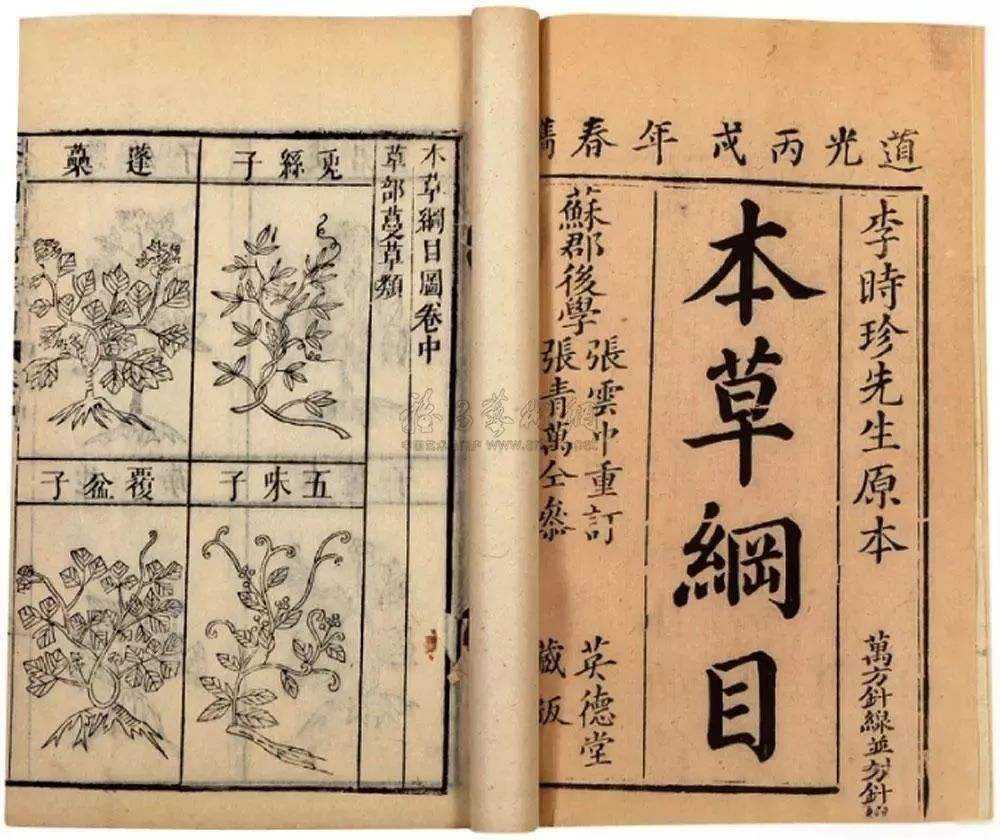 道光丙戌年春鐫
李時珍先生原本
萬方針線並
本草綱目
蘇郡後學
張雲中重訂
張青萬仝參
英德堂
藏版
本草綱目圖卷中
草部蔓草類
兎絲子
蓬蘽
五味子
覆盆子